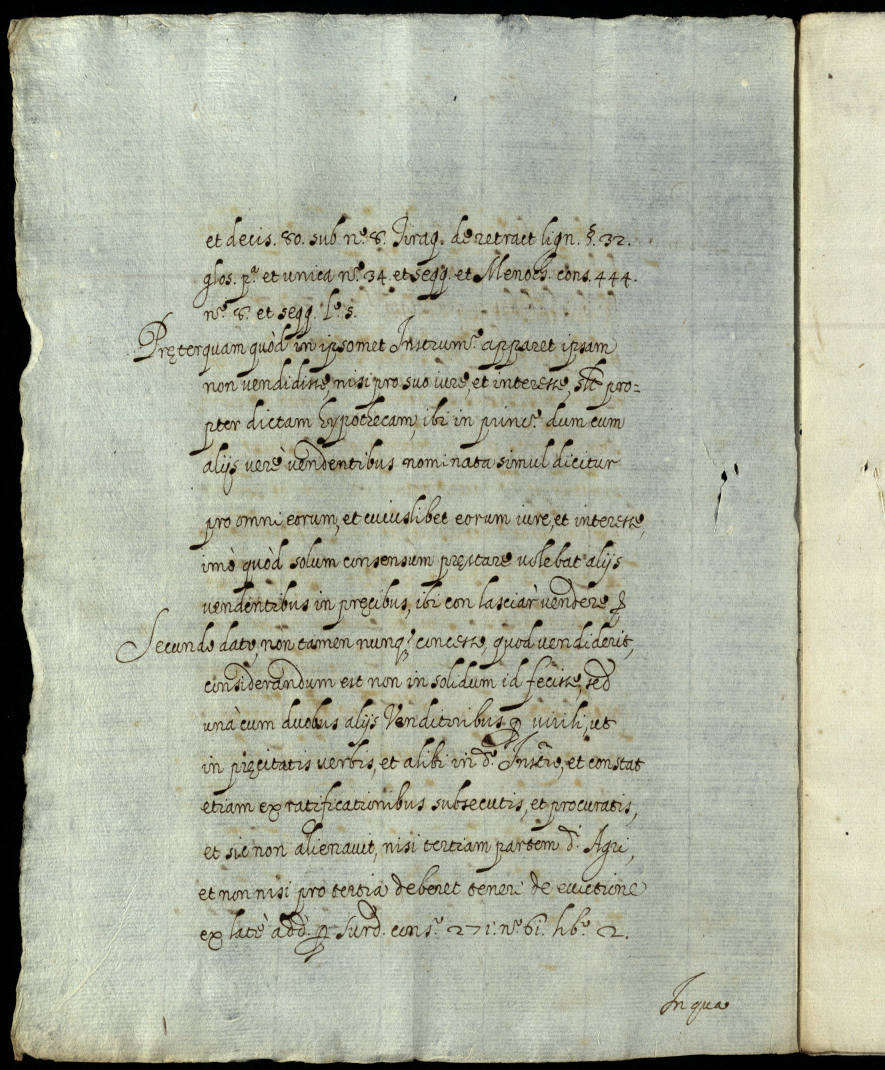 et decis. 80. sub nº. 8. Tiraq. de retract lign. §. 32.
glos. pª. et unica nº. 34. et seqq. et Menoch. cons. 444.
nº. 8. et seqq. lº. 5.
Pręterquam quòd in ipsomet Instrumº. apparet ipsam
non vendidisse, nisi pro suo iure, et interesse, pro=
pter dictam hypothecam, ibi in princº. dum cum
alijs verè vendentibus nominata simul dicitur
pro omni eorum, et cuiuslibet eorum iure, et interesse,
imò quòd solum consensum pręstare volebat alijs
vendentibus in pręcibus, ibi con lasciar vendere
Secundo dato, non tamen nunqȝ. concesso, quod vendiderit,
considerandum est non in solidum id fecisse, sed
unà cum duobus alijs Venditoribus virili, ut
in pręcitatis verbis, et alibi in dº. Instrº, et constat
etiam ex ratificationibus subsecutis, et procuratis,
et sic non alienavit, nisi tertiam partem di. Agri,
et non nisi pro tertia deberet teneri de evictione
ex latè add. Surd. consº. 271. nº. 61. libº. 2.
In qua